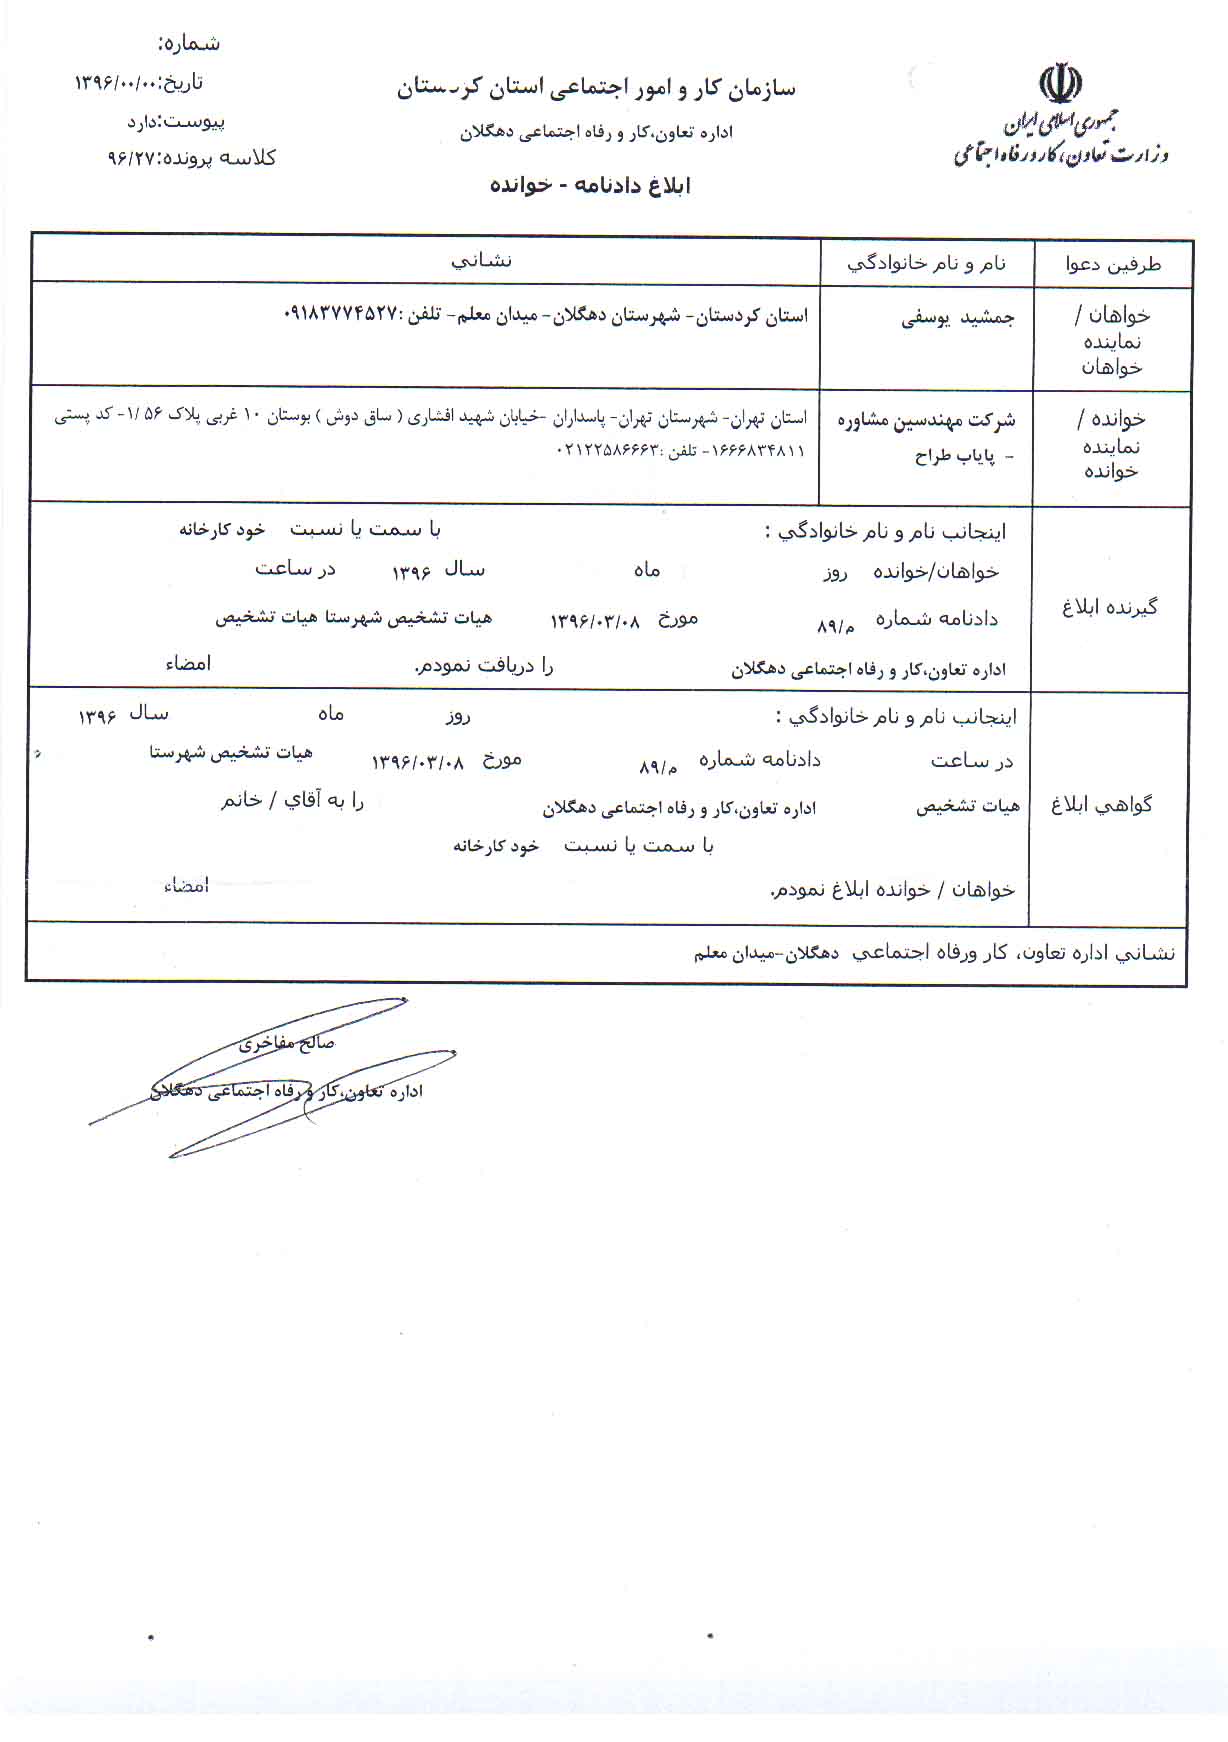 جمهوری اسلامی ایران
وزارت تعاون، کار و رفاه اجتماعی
سازمان کار و امور اجتماعی استان کردستان
اداره تعاون،کار و رفاه اجتماعی دهگلان
ابلاغ دادنامه - خوانده
شماره:
تاریخ:۱۳۹۶/۰۰/۰۰
پیوست:دارد
کلاسه پرونده:۹۶/۲۷
طرفین دعوا نام و نام خانوادگي نشاني
خواهان / نماینده خواهان جمشید یوسفی استان کردستان- شهرستان دهگلان- میدان معلم- تلفن :۰۹۱۸۳۷۷۴۵۲۷
خوانده / نماینده خوانده شرکت مهندسین مشاوره - پایاب طراح استان تهران- شهرستان تهران- پاسداران -خیابان شهید افشاری ( ساق دوش ) بوستان ۱۰ غربی پلاک ۵۶ /۱- کد پستی
۱۶۶۶۸۳۴۸۱۱- تلفن :۰۲۱۲۲۵۸۶۶۶۳
گیرنده ابلاغ
اینجانب نام و نام خانوادگي : با سمت یا نسبت خود کارخانه
خواهان/خوانده روز ماه سال ۱۳۹۶ در ساعت
دادنامه شماره م/۸۹ مورخ ۱۳۹۶/۰۳/۰۸ هیات تشخیص شهرستا هیات تشخیص
اداره تعاون،کار و رفاه اجتماعی دهگلان را دریافت نمودم. امضاء
گواهي ابلاغ
اینجانب نام و نام خانوادگي : روز ماه سال ۱۳۹۶
در ساعت دادنامه شماره م/۸۹ مورخ ۱۳۹۶/۰۳/۰۸ هیات تشخیص شهرستا
هیات تشخیص اداره تعاون،کار و رفاه اجتماعی دهگلان را به آقاي / خانم
با سمت یا نسبت خود کارخانه
خواهان / خوانده ابلاغ نمودم. امضاء
نشاني اداره تعاون، کار ورفاه اجتماعي دهگلان-میدان معلم
صالح مفاخری
اداره تعاون،کار و رفاه اجتماعی دهگلان